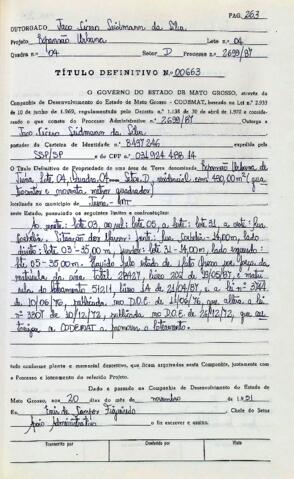 PAG. 263
OUTORGADO
Projeto Expansão Urbana Lote n.º 04
Quadra n.º 04 Setor D Processo n.º 2699/87
TÍTULO DEFINITIVO N.º 00663
O GOVERNO DO ESTADO DE MATO GROSSO, através da
Companhia de Desenvolvimento do Estado de Mato Grosso - CODEMAT, baseado na Lei n.º 2.933
de 10 de junho de 1.969, regulamentada pelo Decreto n.º 1.138 de 30 de abril de 1.972 e conside-
rando o que consta do Processo Administrativo n.º 2699/87 Outorga a
portador da Carteira de Identidade n.º 8497246 expedida pela
SSP/SP e do CPF n.º 031 924 488 14
O Título Definitivo de Propriedade de uma área de Terra denominada Expansão Urbana de
lote 04, Quadra 04 Setor D, residencial com 490,00 m² (qua
trocentos e noventa metros quadrados)
localizada no município de
neste Estado, possuindo os seguintes limites e confrontações:
Ao norte: lote 03, ao sul: lote 05, a leste: lote 31, a oeste: Rua
frente: Rua 14,00m, lado
direito: lote 03 - 35,00m, fundos: lote 31 - 14,00m, lado esquerdo:
lote 05 - 35,00m. por força da
matrícula da área total
do loteamento 51211, livro 24 de 21/04/87, e a lei nº 3744
de 10/06/76, publicada no D.O.E. de 11/06/76, que altera a lei
nº 3307 de 10/12/72, publicada no D.O.E. de 26/12/72, que au-
toriza a CODEMAT a promover o loteamento.
tudo conforme planta e memorial descritivo, que ficam arquivados nesta Companhia, juntamente com
o Processo e loteamento do referido Projeto.
Dado e passado na Companhia de Desenvolvimento do Estado de
Mato Grosso, aos 20 dias do mês de novembro de 1.991
Eu, Chefe do Setor
Apoio Administrativo o fiz escrever e assino.
Transcrito por Conferido por Visto